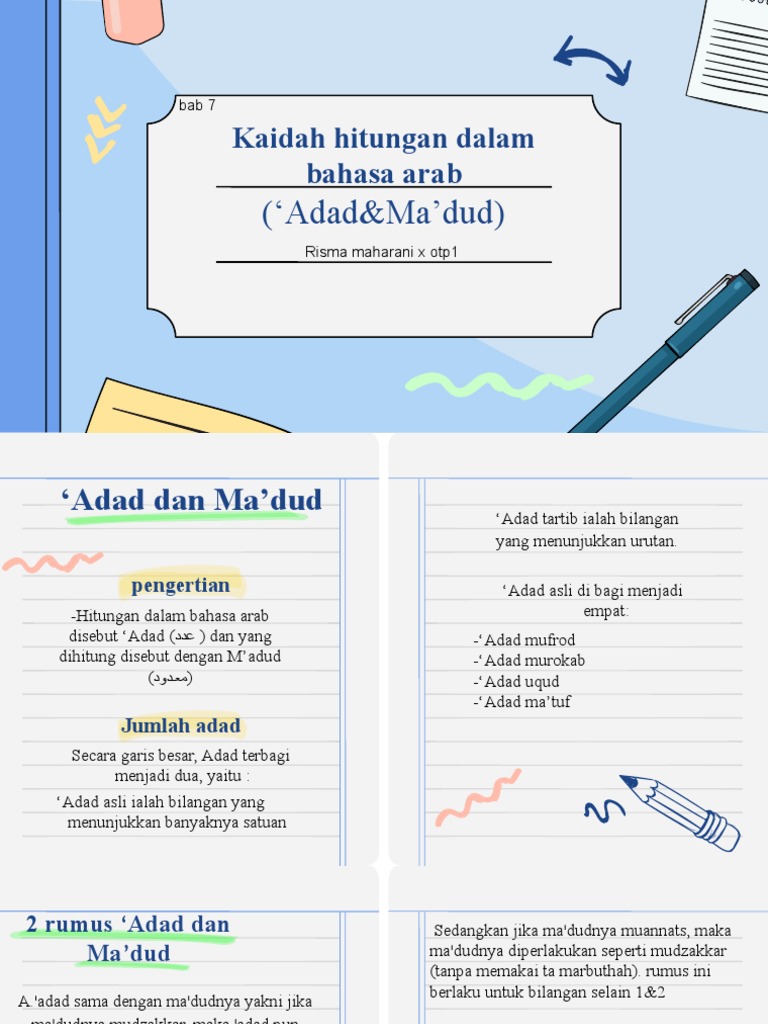 bab 7
Kaidah hitungan dalam
bahasa arab
(‘Adad&Ma’dud)
Risma maharani x otp1
‘Adad dan Ma’dud
pengertian
-Hitungan dalam bahasa arab
disebut ‘Adad (عدد ) dan yang
dihitung disebut dengan M’adud
(معدود)
Jumlah adad
Secara garis besar, Adad terbagi
menjadi dua, yaitu :
‘Adad asli ialah bilangan yang
menunjukkan banyaknya satuan
‘Adad tartib ialah bilangan
yang menunjukkan urutan.
‘Adad asli di bagi menjadi
empat:
-‘Adad mufrod
-‘Adad murokab
-‘Adad uqud
-‘Adad ma’tuf
2 rumus ‘Adad dan
Ma’dud
A.'adad sama dengan ma'dudnya yakni jika
ma'dudnya mudzakkar maka 'adad pun
Sedangkan jika ma'dudnya muannats, maka
ma'dudnya diperlakukan seperti mudzakkar
(tanpa memakai ta marbuthah). rumus ini
berlaku untuk bilangan selain 1&2